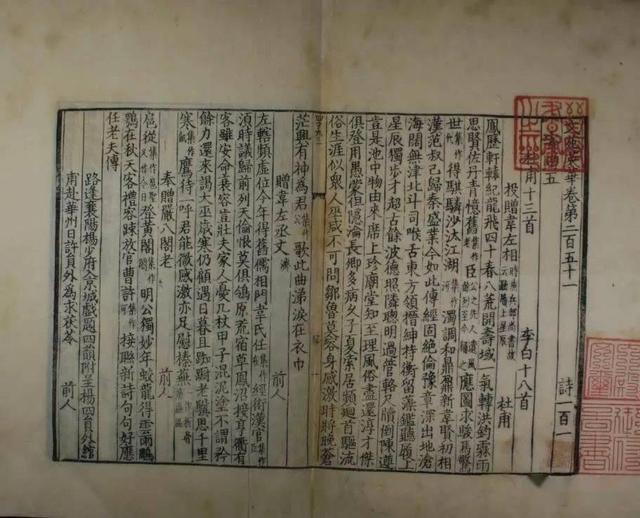 文苑英華卷第二百五十一 詩一百一
五
杜甫十三首 李白十八首
投贈韋左相 杜甫
鳳歷軒轅紀龍飛四十春八荒開壽域一氣轉洪鈞霖雨
思賢佐丹青憶舊集作臣應圖求駿馬驚
世集作得騏驎沙汰江湖集作濁調和鼎鼐新韋賢初相
漢范叔已歸秦盛業今如此傳經固絶倫豫章深出地滄
海闊無津北斗司喉舌東方領搢紳持衡留藻鑑聽履上
星辰獨步才超古餘波德照隣聰明過管輅尺牘倒陳遵
豈是池中物由來席上珎廟堂知至理風俗盡還淳才傑
俱登用愚蒙但隱淪長卿多病久子夏索居頻廻首驅流
俗生涯似衆人巫咸不可問鄒魯莫容身感激時將晚蒼
茫興有神為君集作歌此曲涕淚在衣巾
贈韋左丞文濟 前人
左轄頻虛位今年得舊儒相門韋氏在集作經術漢官集作
須時議歸前列天倫恨莫俱鴒原荒宿草鳳沼接亨衢有
客雖安命衰容豈壯夫家人憂几杖甲子混泥塗不謂矜
餘力還來謁大巫歲寒仍顧遇日暮且踟蹰老驥思千
寒鷹待一呼君能微感激亦足慰榛蕪
奉贈嚴八閣老 前人
扈從登黃閣明公獨妙年蛟龍得雲雨鵰
鶚在秋天客禮容踈放官曹許集作接聯新詩句句好應
任老夫傳
路逢襄陽楊少府入京城戲題四韻附呈楊四員外綰
甫赴華州日許員外為求茯苓 前人